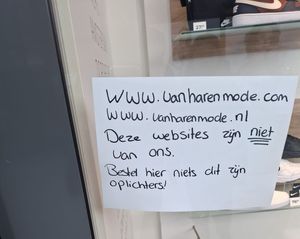 www.vanharenmode.com
www.vanharenmode.nl
Deze websites zijn niet
van ons.
Bestel hier niets dit zijn
oplichters!